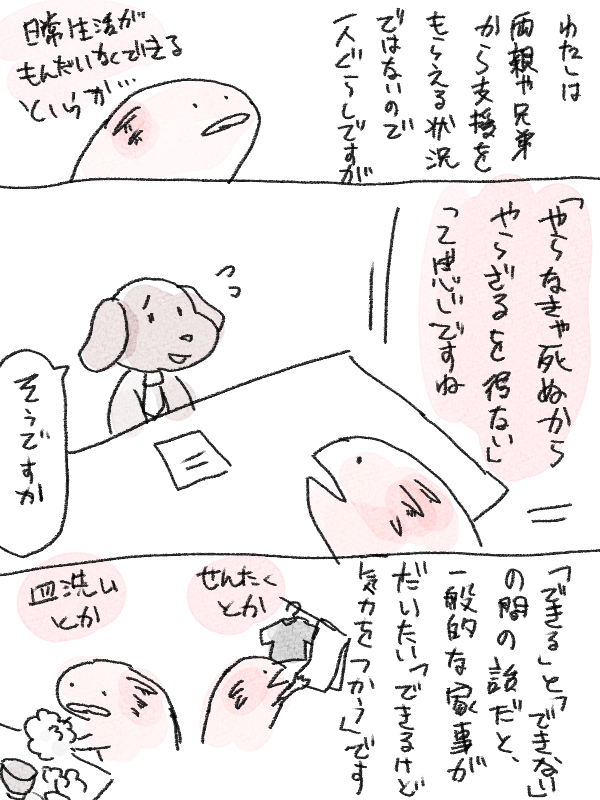 わたしは
両親や兄弟
から支援を
もらえる状況
ではないので
一人ぐらしですが
日常生活が
もんだいなくできる
というか…
「やらなきゃ死ぬから
やらざるを得ない」
って感じですね
そうですか
「できる」と「できない」
の間の話だと、
一般的な家事が
だいたい「できるけど
気力をつかう」です
せんたく
とか
皿洗い
とか